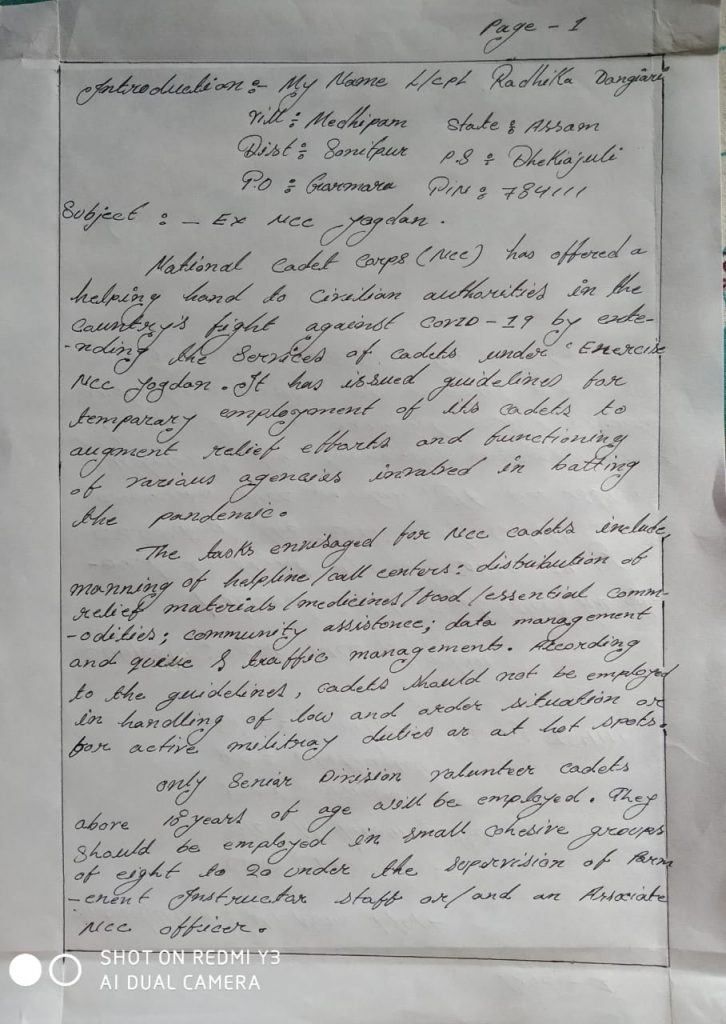 Page - 1
Introduction :- My Name L/cpl Radhika Dangiari
Vill : Medhipam State : Assam
Dist : Sonitpur P.S : Dhekiajuli
P.O : Garmara PIN : 784111
Subject : - Ex NCC Yogdan.
National Cadet Corps (NCC) has offered a
helping hand to civilian authorities in the
Country's fight against COVID-19 by exte-
-nding the Services of cadets under 'Exercise
NCC Yogdan. It has issued guidelines for
temparary employment of its cadets to
augment relief efforts and functioning
of various agencies involved in batting
the pandemic.
The tasks envisaged for NCC cadets include,
manning of helpline/call centers: distribution of
relief materials/medicines/food/essential comm-
-odities; community assistence; data management
and queue & traffic managements. According
to the guidelines, cadets should not be employed
in handling of law and order situation or
for active militray duties or at hot spots.
Only Senior Division volunteer cadets
above 18 years of age will be employed. They
Should be employed in small cohesive groups
of eight to 20 under the supervision of Parm
-enent Instructor staff or/and an Associate
NCC officer.
SHOT ON REDMI Y3
AI DUAL CAMERA